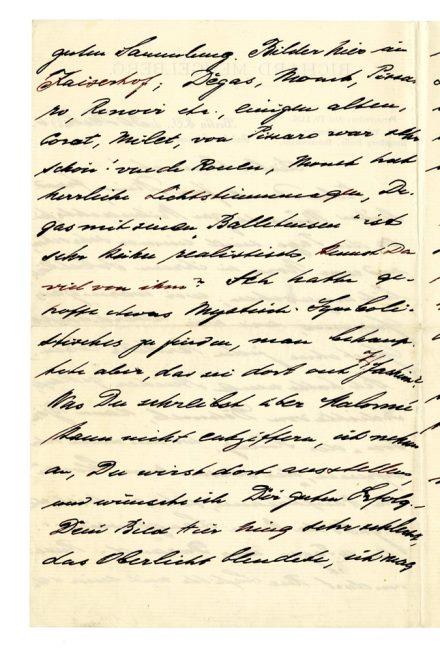 guten Sammlung Bilder hier im
Kaiserhof; Dégas, Monet, Pissa-
ro, Renoir etc. einigen alten,
Corot, Milet, von Pissaro war sehr
schön: rue de Rouen, Monet hat
herrliche Lichtstimmungen, De-
gas mit seinen "Balleteusen" ist
sehr kühn realistisch, kennst Du
viel von ihm? Ich hatte ge-
hofft etwas Mystisch-Symboli-
stisches zu finden, man behaup-
tete aber, das sei dort out
Was Du schreibst über
kann nicht entziffern, ich nehme
an, Du wirst dort ausstellen
und wünsche ich Dir guten Erfolg.
Dein Bild hier hing sehr schlecht,
das Oberlicht blendete, ich mag